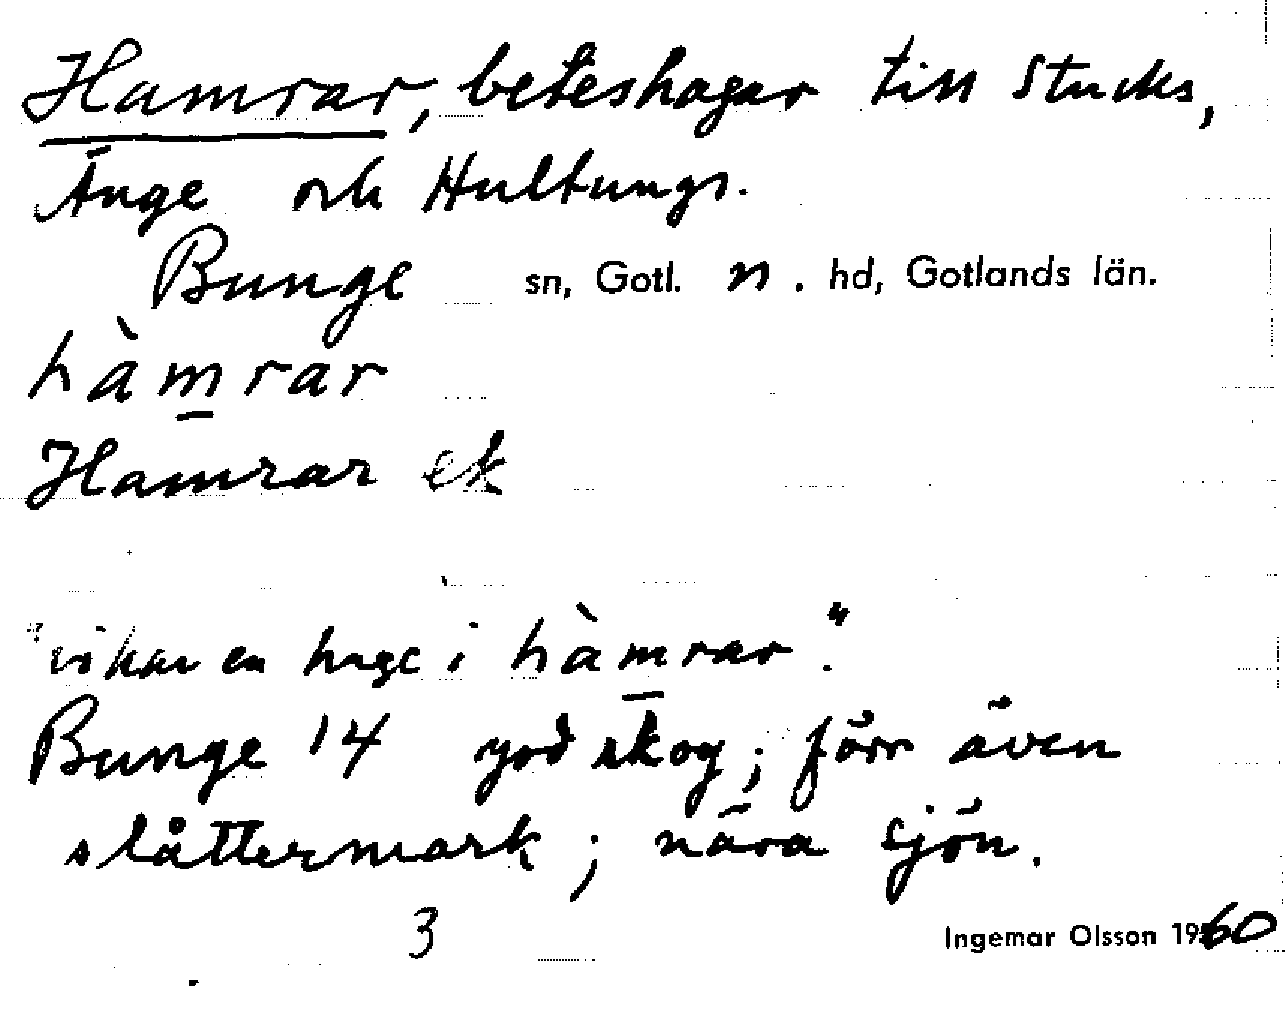 Hamrar, beteshagar till Stucks,
Änge och Hultungs.
Bunge sn, Gotl. n. hd, Gotlands län.
hàm̲rar
Hamrar ek
"vi har en hage i hàm̲rar."
Bunge 14 god skog; förr även
slåttermark; nära sjön.
3
Ingemar Olsson 1960